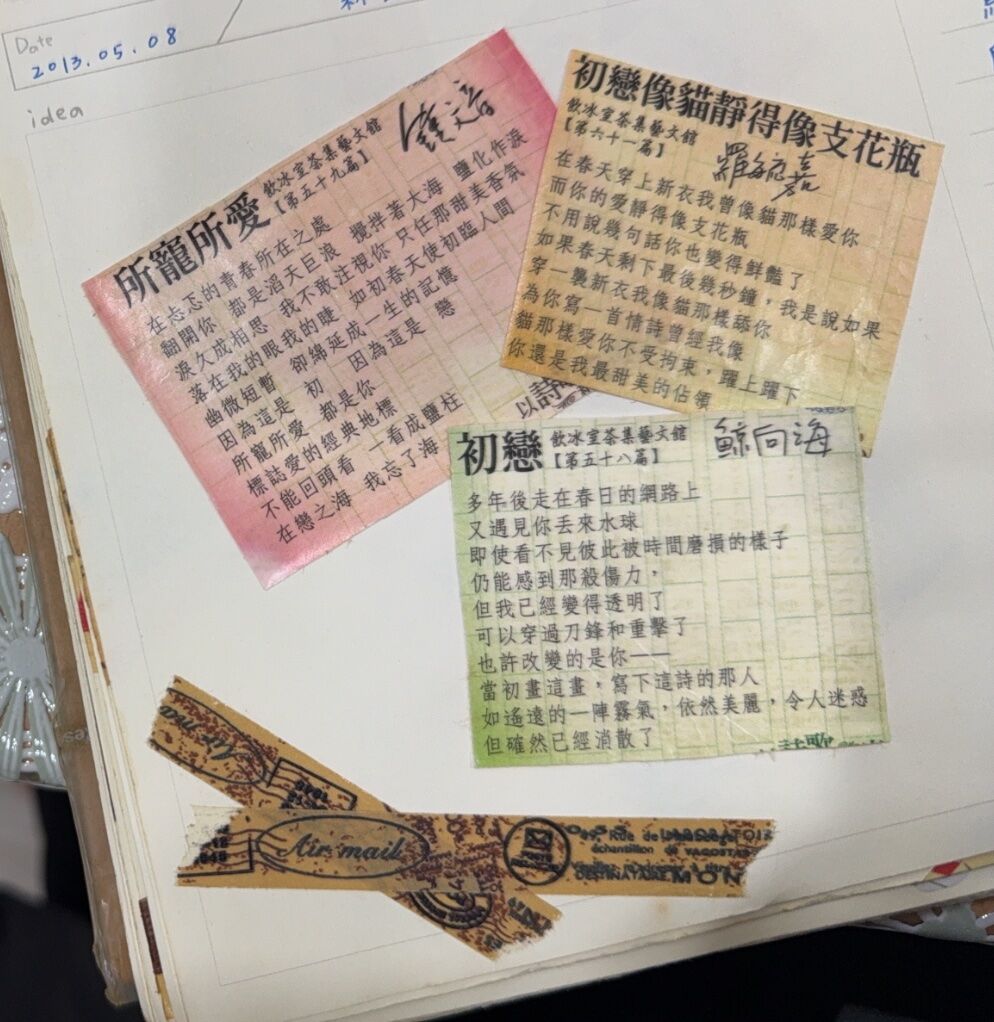 Date
2013.05.08
idea
所寵所愛
飲冰室茶集藝文館
【第五十九篇】
鍾文音
在忐忑的青春所在之處
翻開你 都是滔天巨浪 攪拌著大海 鹽化作淚
淚久成相思 我不敢注視你 只任那甜美香氣
落在我的眼我的睫 如初春天使初臨人間
幽微短暫 卻綿延成一生的記憶
因為這是 初 因為這是 戀
所寵所愛 都是你
標誌愛的經典地標
不能回頭看 一看成鹽柱
在戀之海 我忘了海
以詩
初戀像貓靜得像支花瓶
飲冰室茶集藝文館
【第六十一篇】
羅毓嘉
在春天穿上新衣我曾像貓那樣愛你
而你的愛靜得像支花瓶
不用說幾句話你也變得鮮豔了
如果春天剩下最後幾秒鐘，我是說如果
穿一襲新衣我像貓那樣舔你
為你寫一首情詩曾經我像
貓那樣愛你不受拘束，躍上躍下
你還是我最甜美的佔領
初戀
飲冰室茶集藝文館
【第五十八篇】
鯨向海
多年後走在春日的網路上
又遇見你丟來水球
即使看不見彼此被時間磨損的樣子
仍能感到那殺傷力，
但我已經變得透明了
可以穿過刀鋒和重擊了
也許改變的是你——
當初畫這畫，寫下這詩的那人
如遙遠的一陣霧氣，依然美麗，令人迷惑
但確然已經消散了
詩歌
Air mail
échantillon de